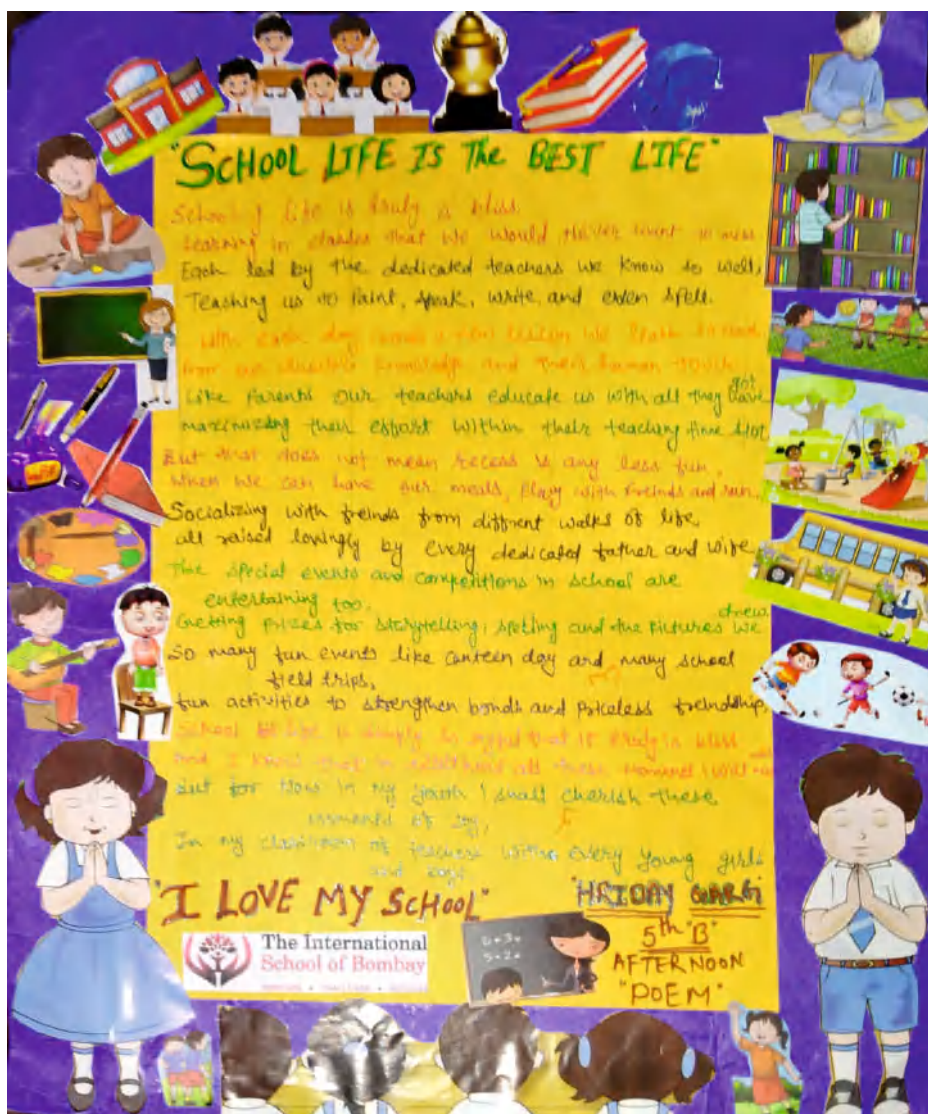 "SCHOOL LIFE IS The BEST LIFE"
School life is truly a bliss
Learning in classes that we would never want to miss.
Each led by the dedicated teachers we know so well,
Teaching us to Paint, speak, write, and even spell.
With each day comes a new lesson we learn
from knowledge and their human touch
Like Parents our teachers educate us with all they have got
maximizing their effort within their teaching time slot
But that does not mean recess is any less fun,
When we can have our meals, Play with freinds and run,
Socializing with freinds from diffrent walks of life,
all raised lovingly by every dedicated father and wife,
The special events and competitions in school are
entertaining too,
Getting prizes for storytelling, spelling and the pictures we drew.
So many fun events like canteen day and many school
field trips,
fun activities to strengthen bonds and Priceless freindship,
School life is simply so that it truly is bliss
And I know that in adulthood all these moments I will
But for now in my youth I shall cherish these
moments of Joy,
In my classroom of teachers with every young girls
and boys.
"I LOVE MY SCHOOL"
HRIDAY
5th "B"
AFTERNOON
"POEM"
The International
School of Bombay